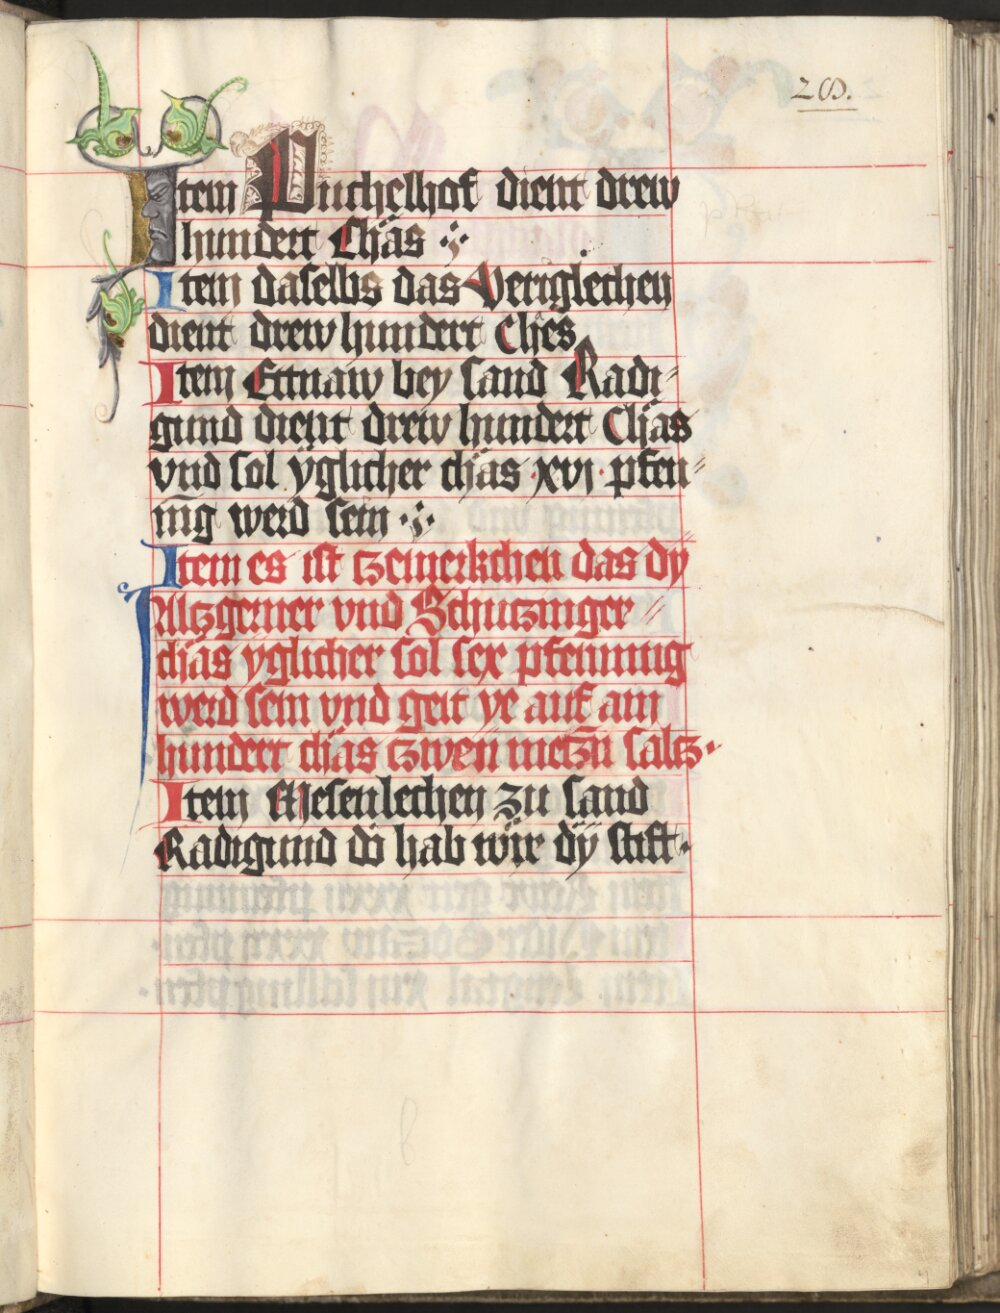 28.
Item Puchelhof dient drew
hundert Chäs
Item daselbs das Veriglechen
dient drew hundert Ches
Item Ettnaw bey sand Radi-
gund dient drew hundert Chäs
vnd sol yglicher chäs xvi pfen-
nig werd sein
Item es ist czemerkchen das dy
Alczgerner vnd Schuczinger
chäs yglicher sol sex pfenning
werd sein vnd geit ye auf ain
hundert chäs czwen meczn salcz
Item Mesenlechen zu sand
Radigund do hab wir dy stift